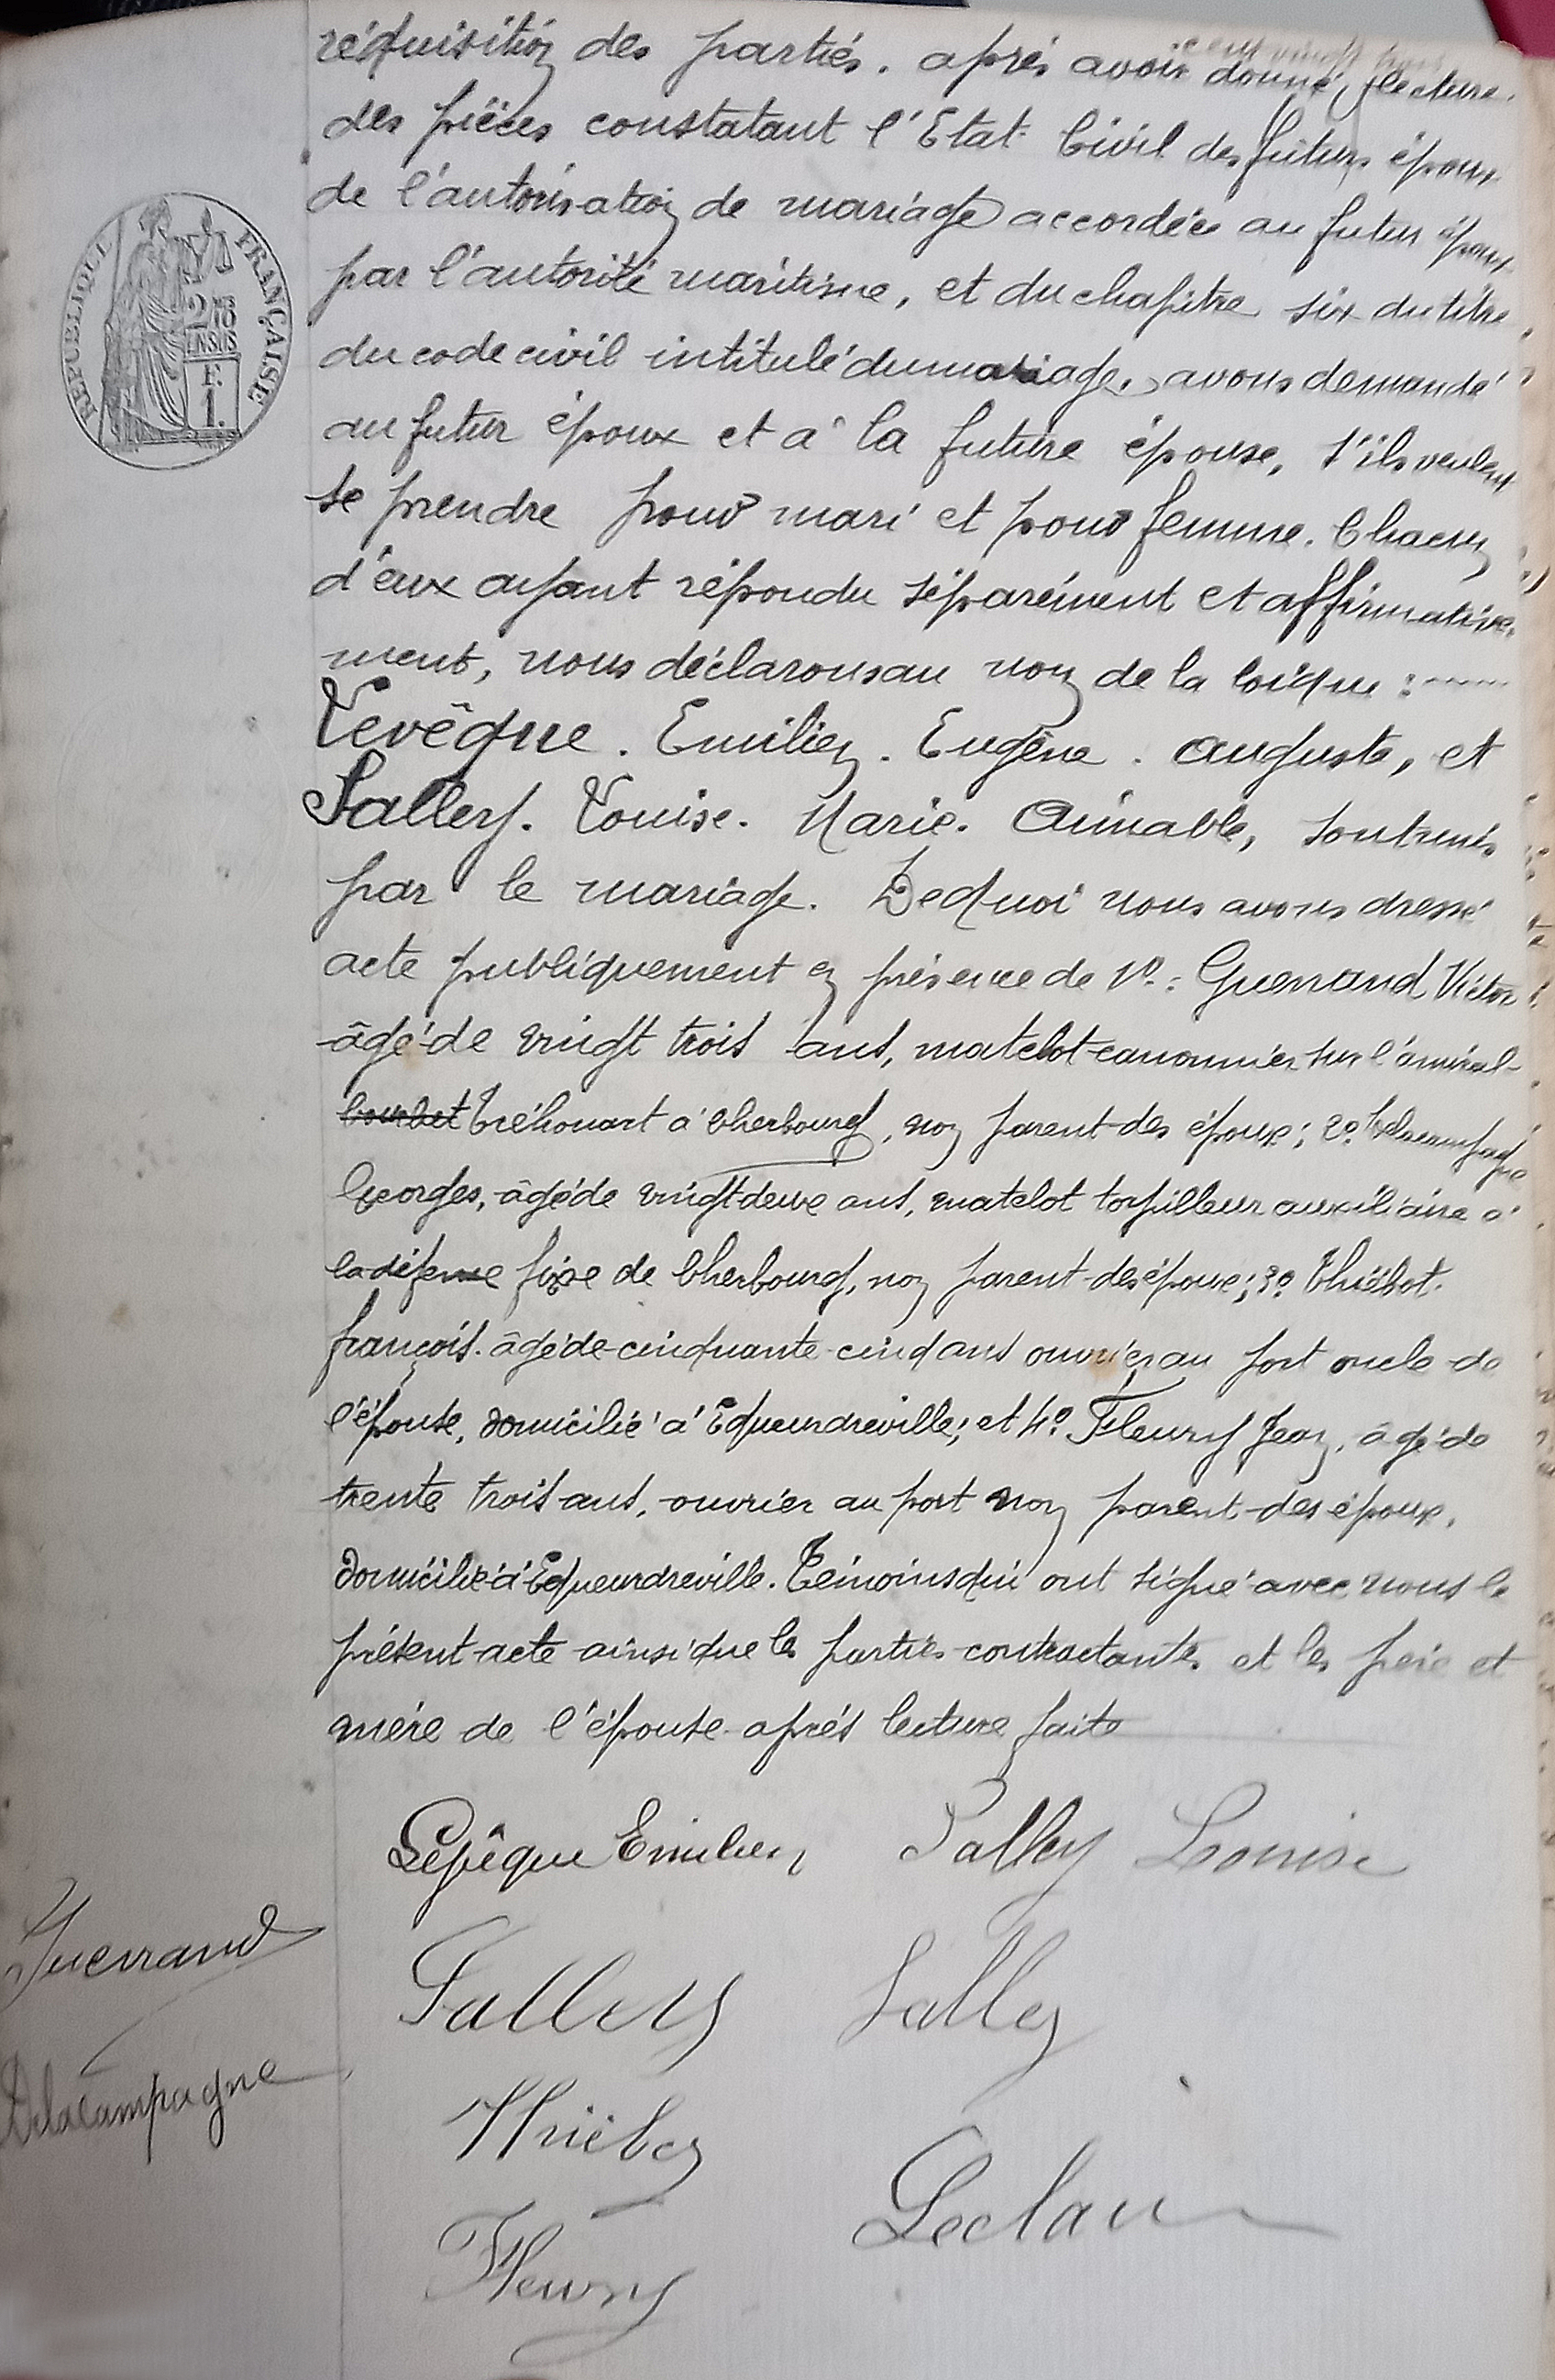 réquisition des parties. après avoir donné lecture.
des pièces constatant l'Etat Civil des futurs époux
de l'autorisation de mariage accordée au futur époux
par l'autorité maritime, et du chapitre six du titre
du code civil intitulé du mariage, avons demandé
au futur époux et à la future épouse, s'ils veulent
se prendre pour mari et pour femme. Chacun
d'eux ayant répondu séparément et affirmative-
ment, nous déclarons au nom de la loi que :
Levêque. Emilien. Eugène. Auguste, et
Sallery. Louise. Marie. Aimable, sont unis
par le mariage. De quoi nous avons dressé
acte publiquement en présence de 1º: Guerrand Victor
âgé de vingt trois ans, matelot canonnier sur l'amiral
courbet Tréhouart à Cherbourg, non parent des époux; 2º Delacampagne
Georges, âgé de vingt deux ans, matelot torpilleur auxiliaire à
la défense fixe de Cherbourg, non parent des époux; 3º Thiébot.
François. âgé de cinquante cinq ans ouvrier au port oncle de
l'épouse, domicilié à Equeurdreville; et 4º Fleury Jean, âgé de
trente trois ans, ouvrier au port non parent des époux,
domicilié à Equeurdreville. Témoins qui ont signé avec nous le
présent acte ainsi que les parties contractantes et les père et
mère de l'épouse après lecture faite
Levêque Emilien Sallery Louise
Guerrand
Sallery Sallery
Delacampagne
Fleury
RÉPUBLIQUE FRANÇAISE
2/10
EN SUS
F.
1.